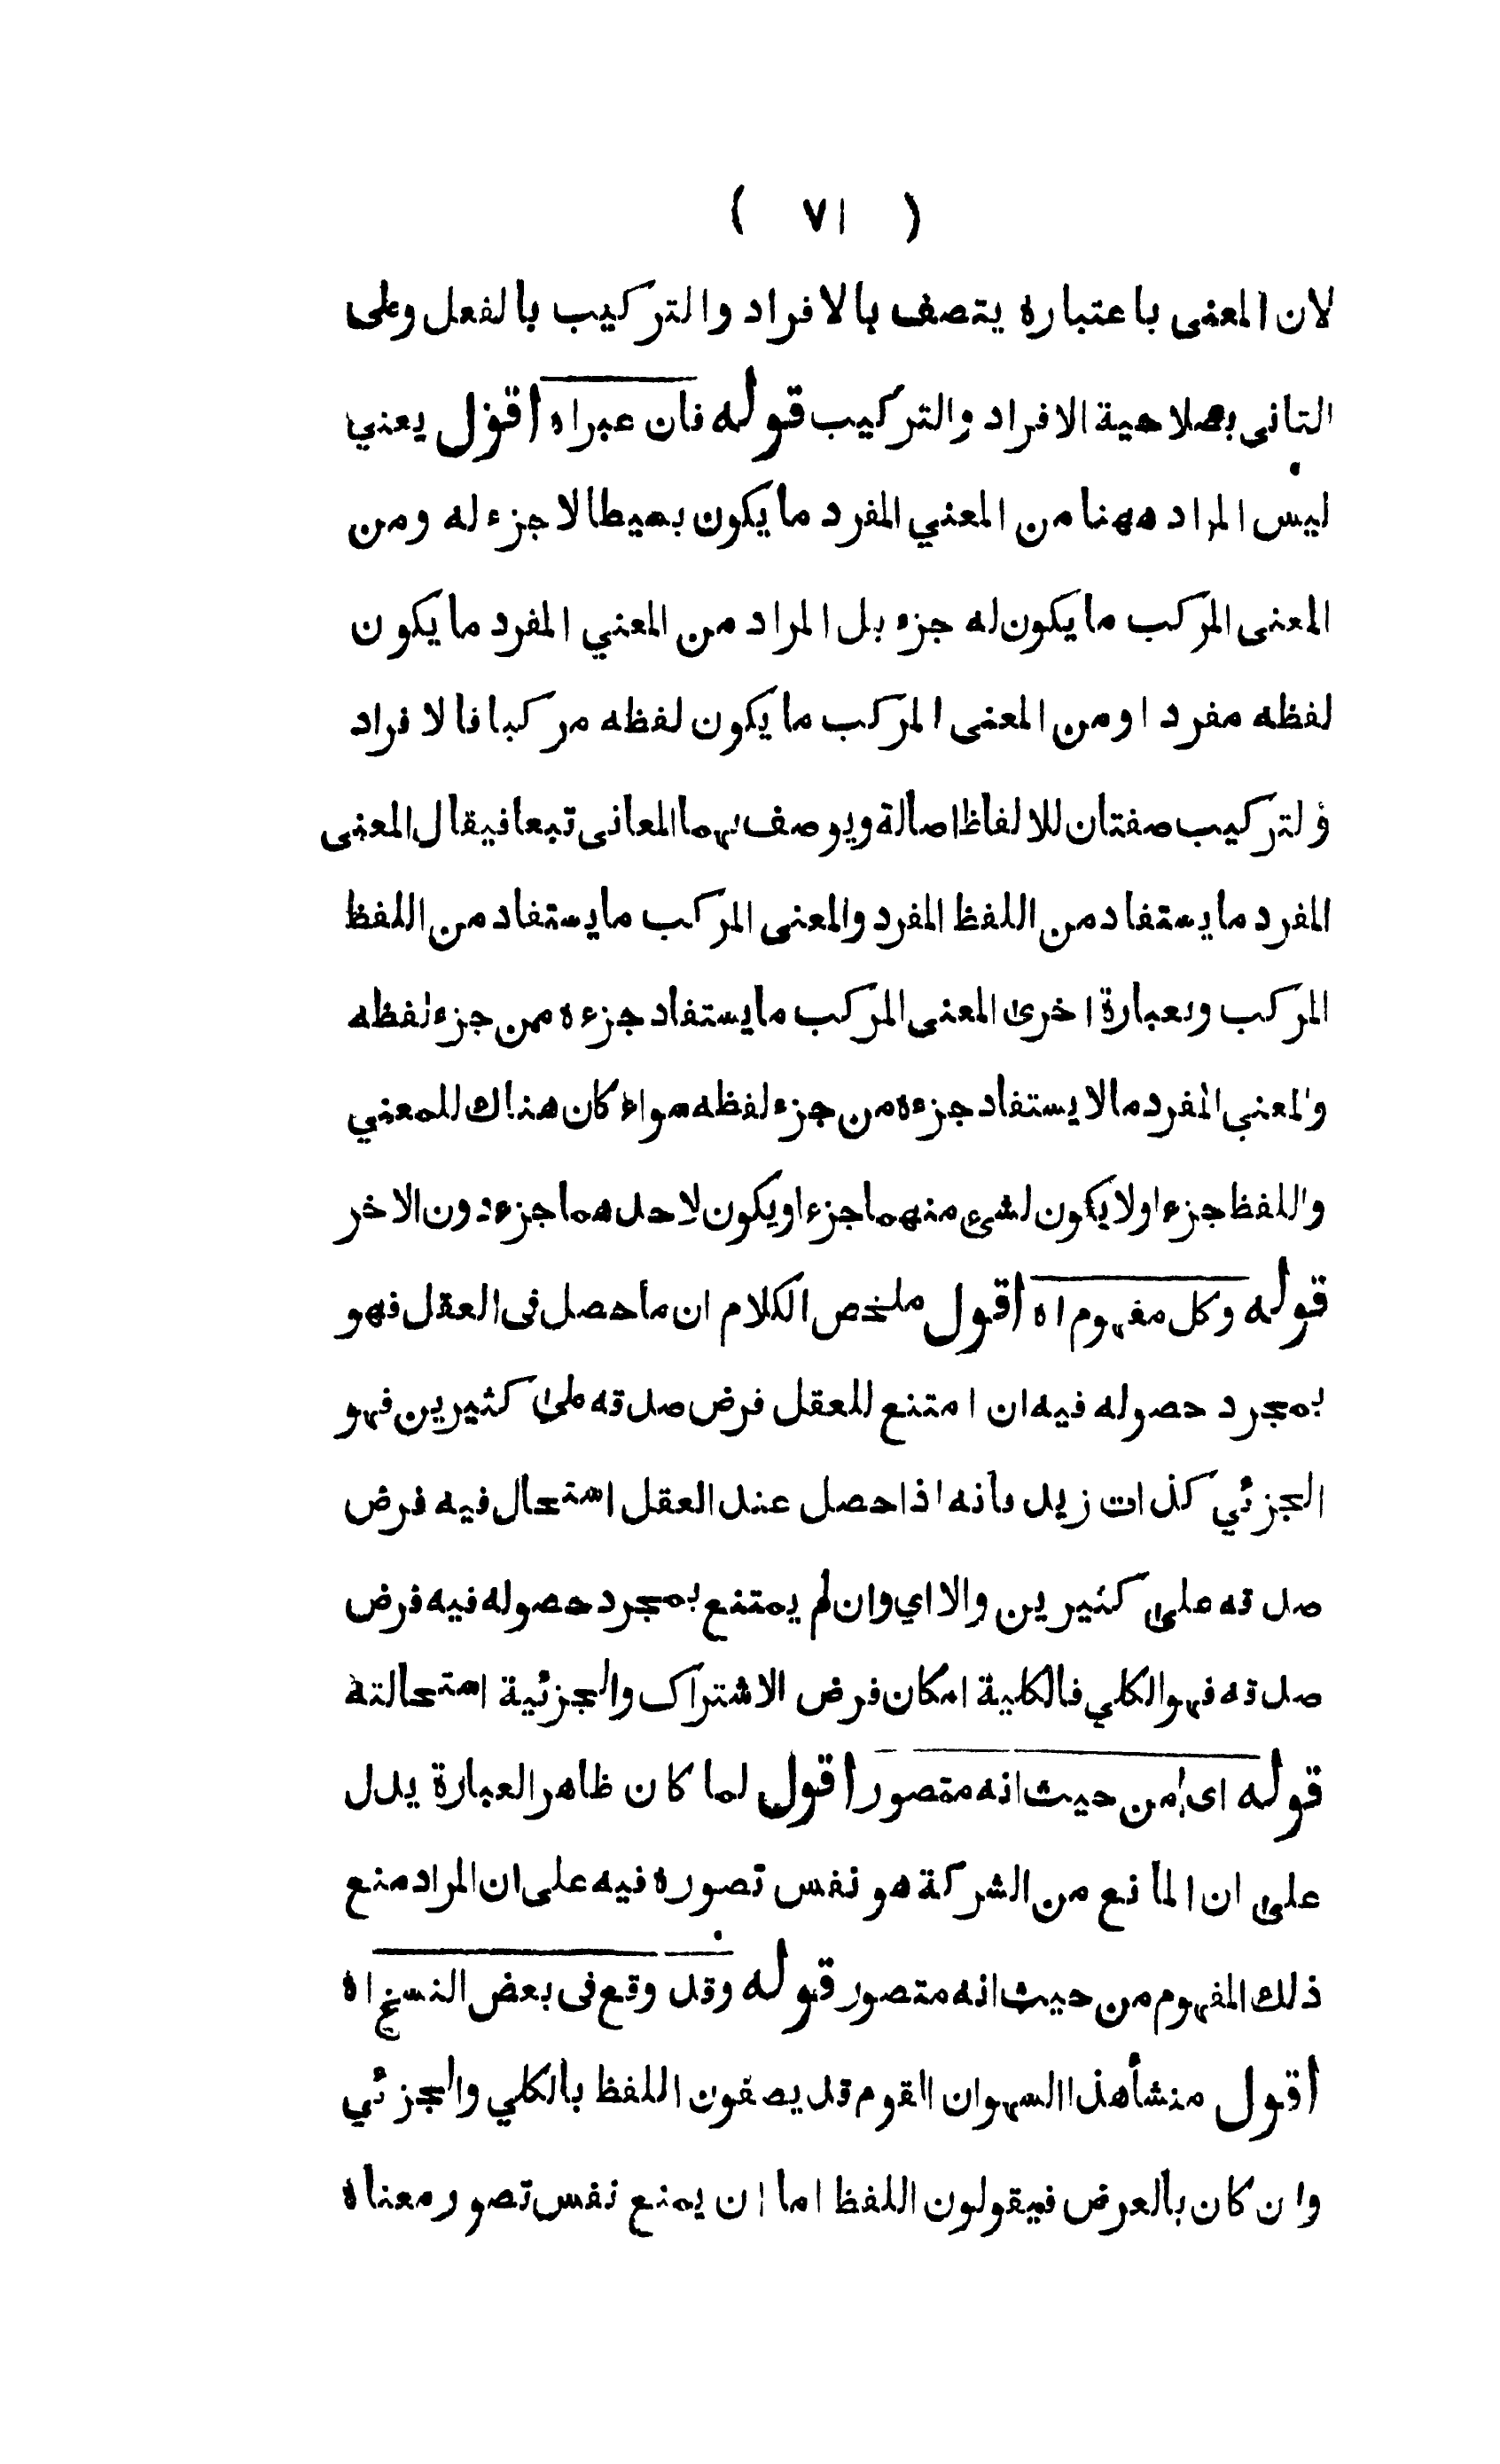 ( ٧١ )
لان المعنى باعتباره يتصف بالافراد والتركيب بالفعل وعلى
الثانى بصلاحية الافراد والتركيب قوله فان عبر اه اقول يعني
ليس المراد ههنا من المعني المفرد ما يكون بسيطا لا جزء له ومن
المعنى المركب ما يكون له جزء بل المراد من المعني المفرد ما يكون
لفظه مفردا ومن المعنى المركب ما يكون لفظه مركبا فالافراد
ولتركيب صفتان للالفاظ اصالة ويوصف بهما المعانى تبعا فيقال المعنى
المفرد ما يستفاد من اللفظ المفرد والمعنى المركب ما يستفاد من اللفظ
المركب وبعبارة اخرى المعنى المركب ما يستفاد جزءه من جزء لفظه
والمعنى المفرد ما لا يستفاد جزءه من جزء لفظه سواء كان هناك للمعني
واللفظ جزء اولا يكون لشىء منهما جزء او يكون لاحدهما جزء دون الاخر
قوله وكل مفهوم اه اقول ملخص الكلام ان ما حصل فى العقل فهو
بمجرد حصوله فيه ان امتنع للعقل فرض صدقه على كثيرين فهو
الجزئي كذات زيد فانه اذا حصل عند العقل استحال فيه فرض
صدقه على كثيرين والا اي وان لم يمتنع بمجرد حصوله فيه فرض
صدقه فهو الكلي فالكلية امكان فرض الاشتراك والجزئية استحالته
قوله اى من حيث انه متصور اقول لما كان ظاهر العبارة يدل
على ان المانع من الشركة هو نفس تصوره نبه على ان المراد منع
ذلك المفهوم من حيث انه متصور قوله وقد وقع فى بعض النسخ اه
اقول منشأ هذا السهو ان القوم قد يصفون اللفظ بالكلي والجزئي
وان كان بالعرض فيقولون اللفظ اما ان يمنع نفس تصور معناه